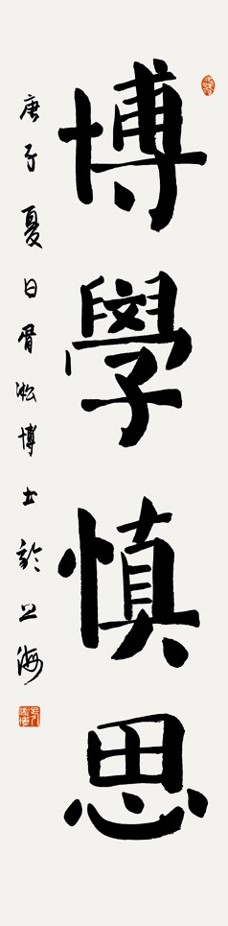 博學慎思
庚子夏日胥淞博士於上海